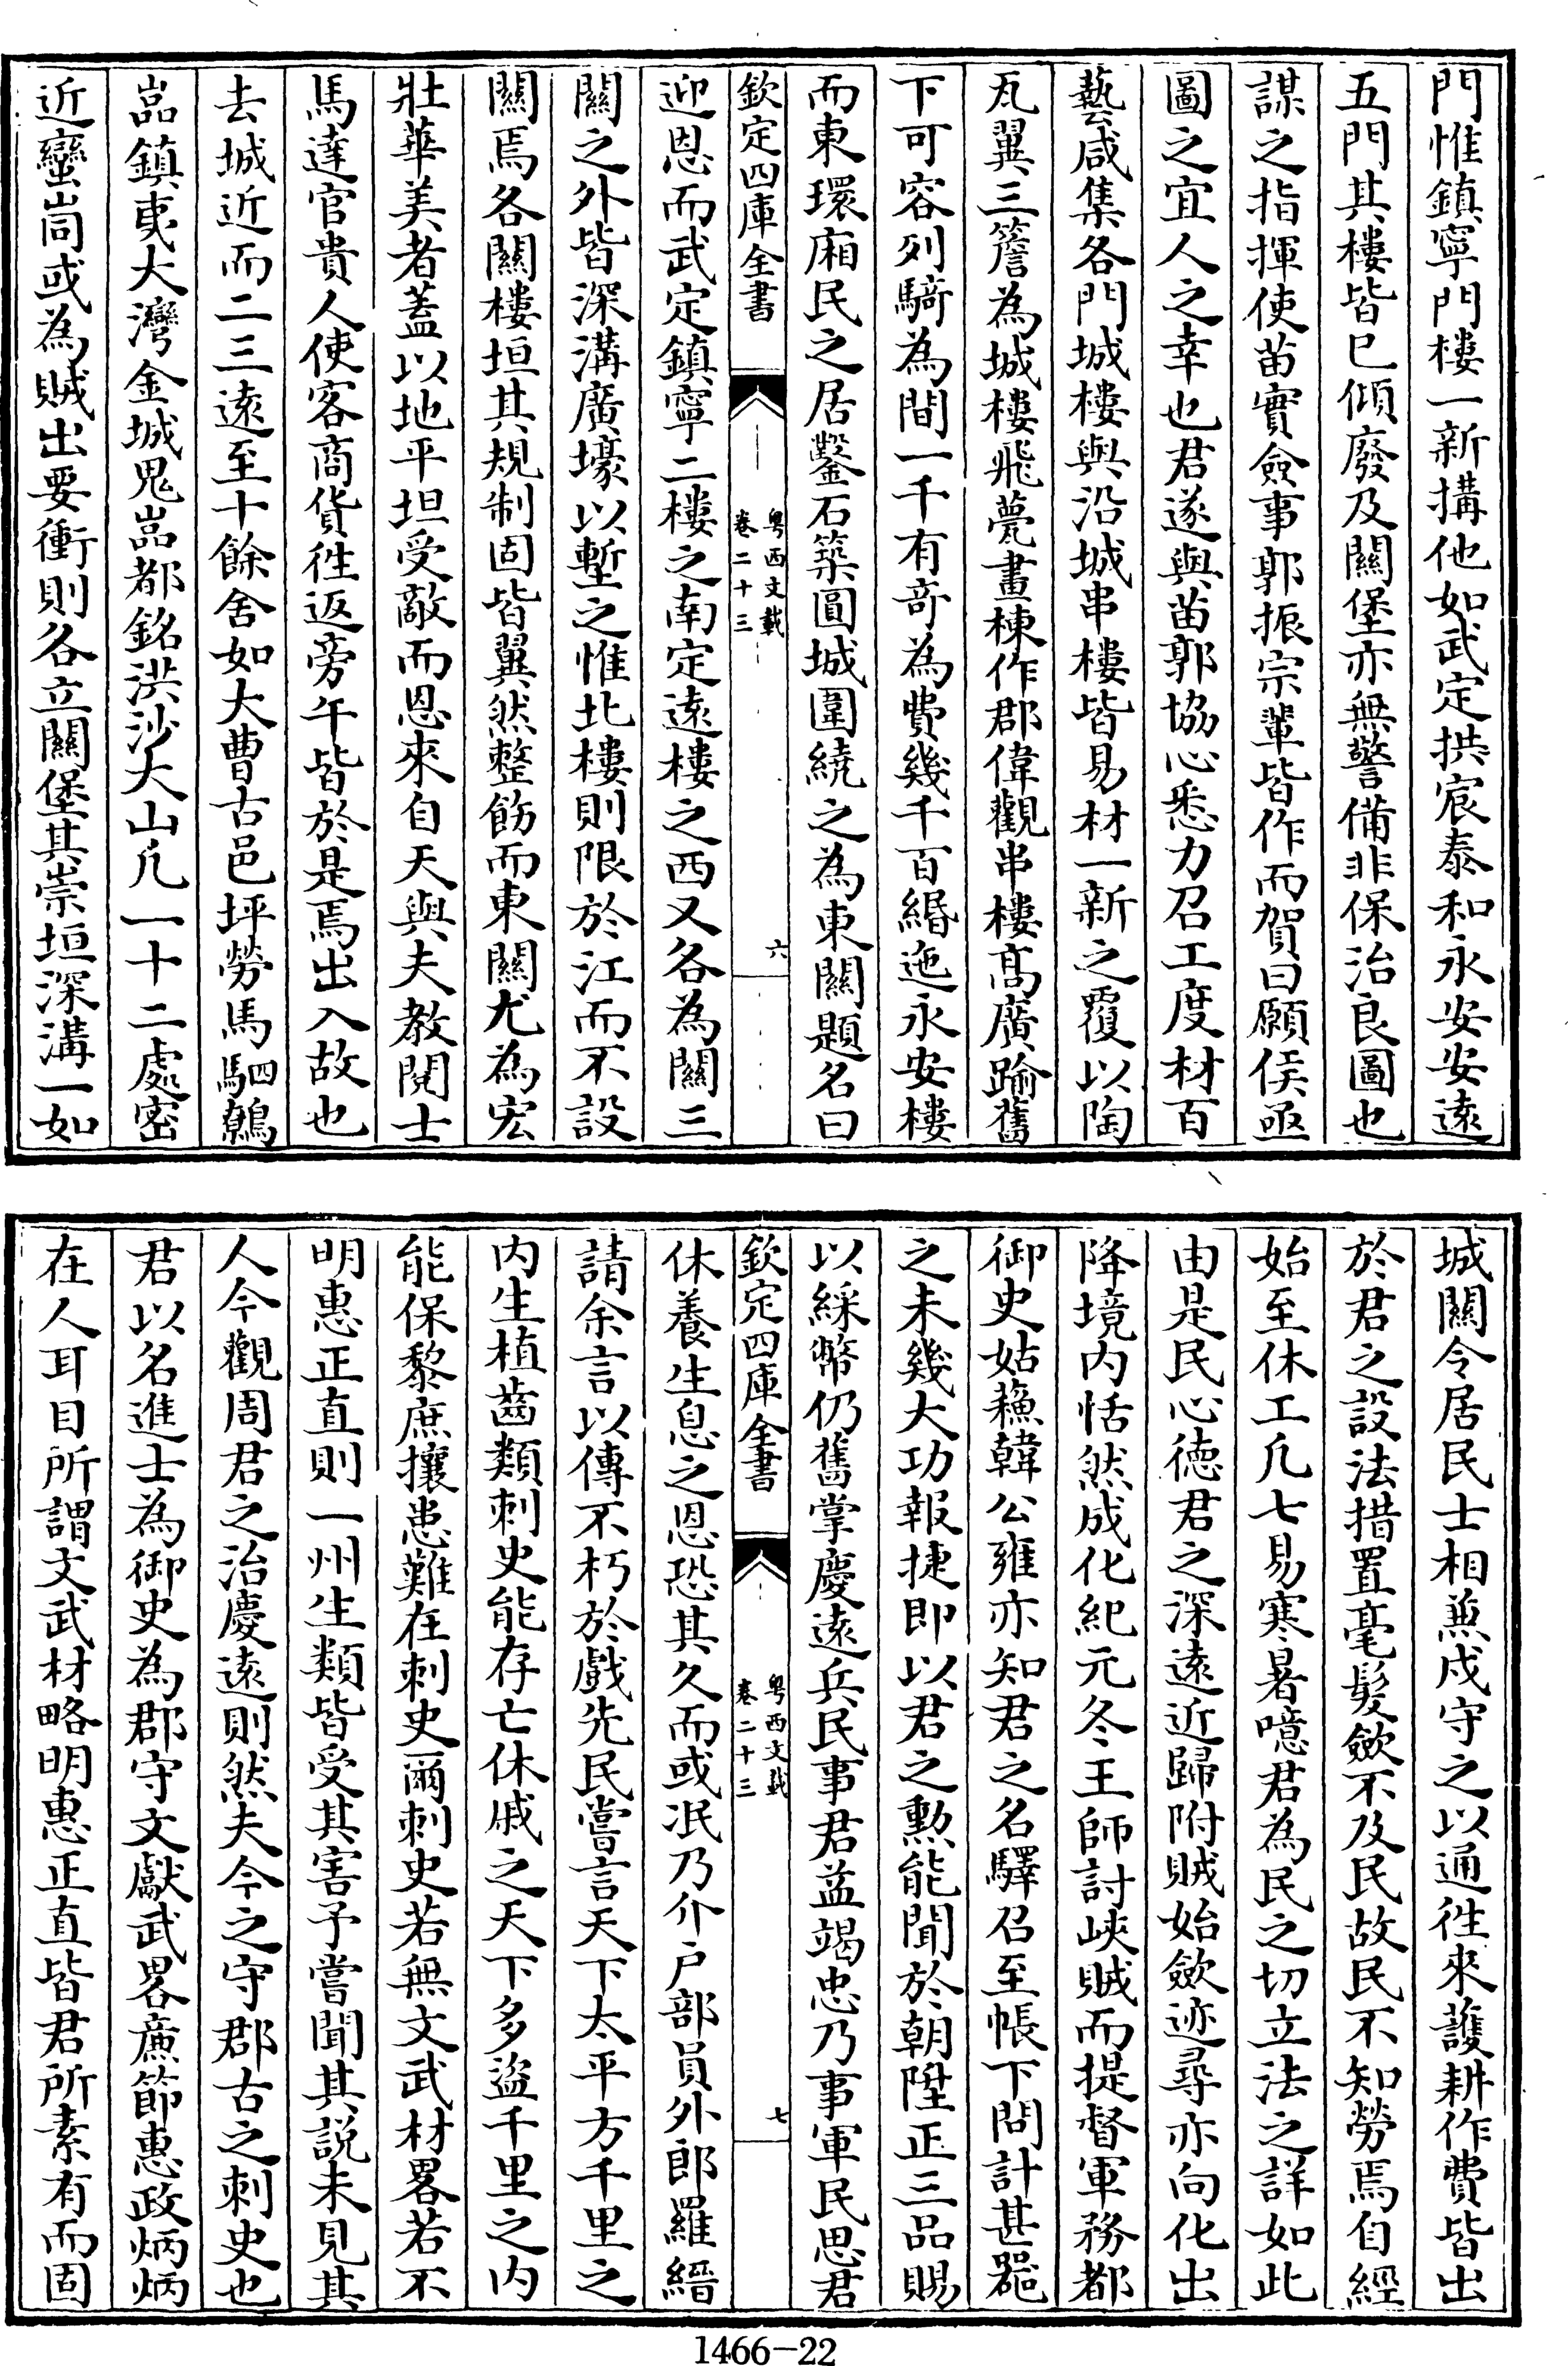 門惟鎮寧門樓一新搆他如武定拱宸泰和永安安遠
五門其樓皆已傾廢及關堡亦無警備非保治良圖也
謀之指揮使苗實僉事郭振宗輩皆作而賀曰願侯亟
圖之宜人之幸也君遂與苗郭協心悉力召工度材百
藝咸集各門城樓與沿城串樓皆易材一新之覆以陶
瓦翼三簷為城樓飛甍畫棟作郡偉觀串樓髙廣踰舊
下可容列騎為間一千有竒為費幾千百緡迤永安樓
而東環廂民之居鑿石築圓城圍繞之為東關題名曰
欽定四庫全書
粤西文載
卷二十三
六
迎恩而武定鎮寧二樓之南定遠樓之西又各為關三
關之外皆深溝廣壕以塹之惟北樓則限於江而不設
關焉各關樓垣其規制固皆翼然整飭而東關尤為宏
壯華美者蓋以地平坦受敵而恩來自天與夫教閱士
馬達官貴人使客商貨徃返旁午皆於是焉出入故也
去城近而二三遠至十餘舍如大曹古邑坪勞馬駟鷯
嵓鎮夷大灣金城鬼嵓都銘洪沙大山凡一十二處密
近蠻峝或為賊出要衝則各立關堡其崇垣深溝一如
城關令居民士相兼戍守之以通徃來䕶耕作費皆出
於君之設法措置毫髮歛不及民故民不知勞焉自經
始至休工凡七易寒暑噫君為民之切立法之詳如此
由是民心德君之深遠近歸附賊始歛迹尋亦向化出
降境内恬然成化紀元冬王師討峽賊而提督軍務都
御史姑蘓韓公雍亦知君之名驛召至帳下問計甚器
之未幾大功報捷即以君之勲能聞於朝陞正三品賜
以綵幣仍舊掌慶遠兵民事君益竭忠乃事軍民思君
欽定四庫全書
粤西文載
卷二十三
七
休養生息之恩恐其久而或冺乃介户部員外郎羅縉
請余言以傳不朽於戲先民嘗言天下太平方千里之
内生植齒類刺史能存亡休戚之天下多盜千里之内
能保黎庶攘患難在刺史爾刺史若無文武材畧若不
明惠正直則一州生類皆受其害予嘗聞其説未見其
人今觀周君之治慶遠則然夫今之守郡古之刺史也
君以名進士為御史為郡守文獻武畧亷節惠政炳炳
在人耳目所謂文武材略明惠正直皆君所素有而固
1466-22